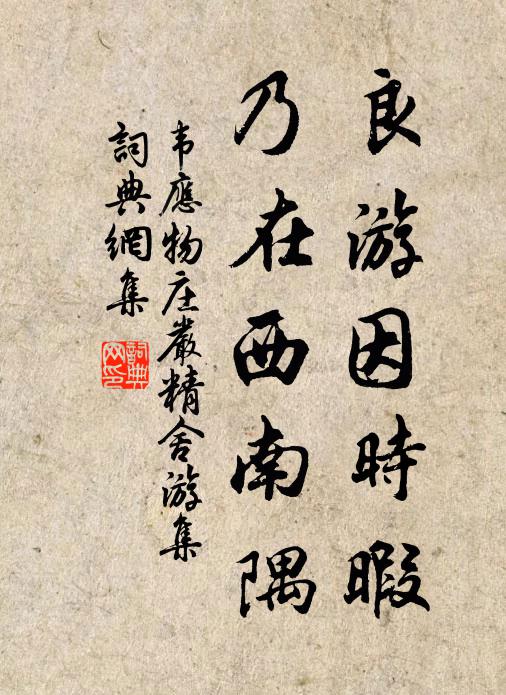 良游因時暇
乃在西南隅
韦應物庄嚴精舍游集
詞典網集
詞典网印